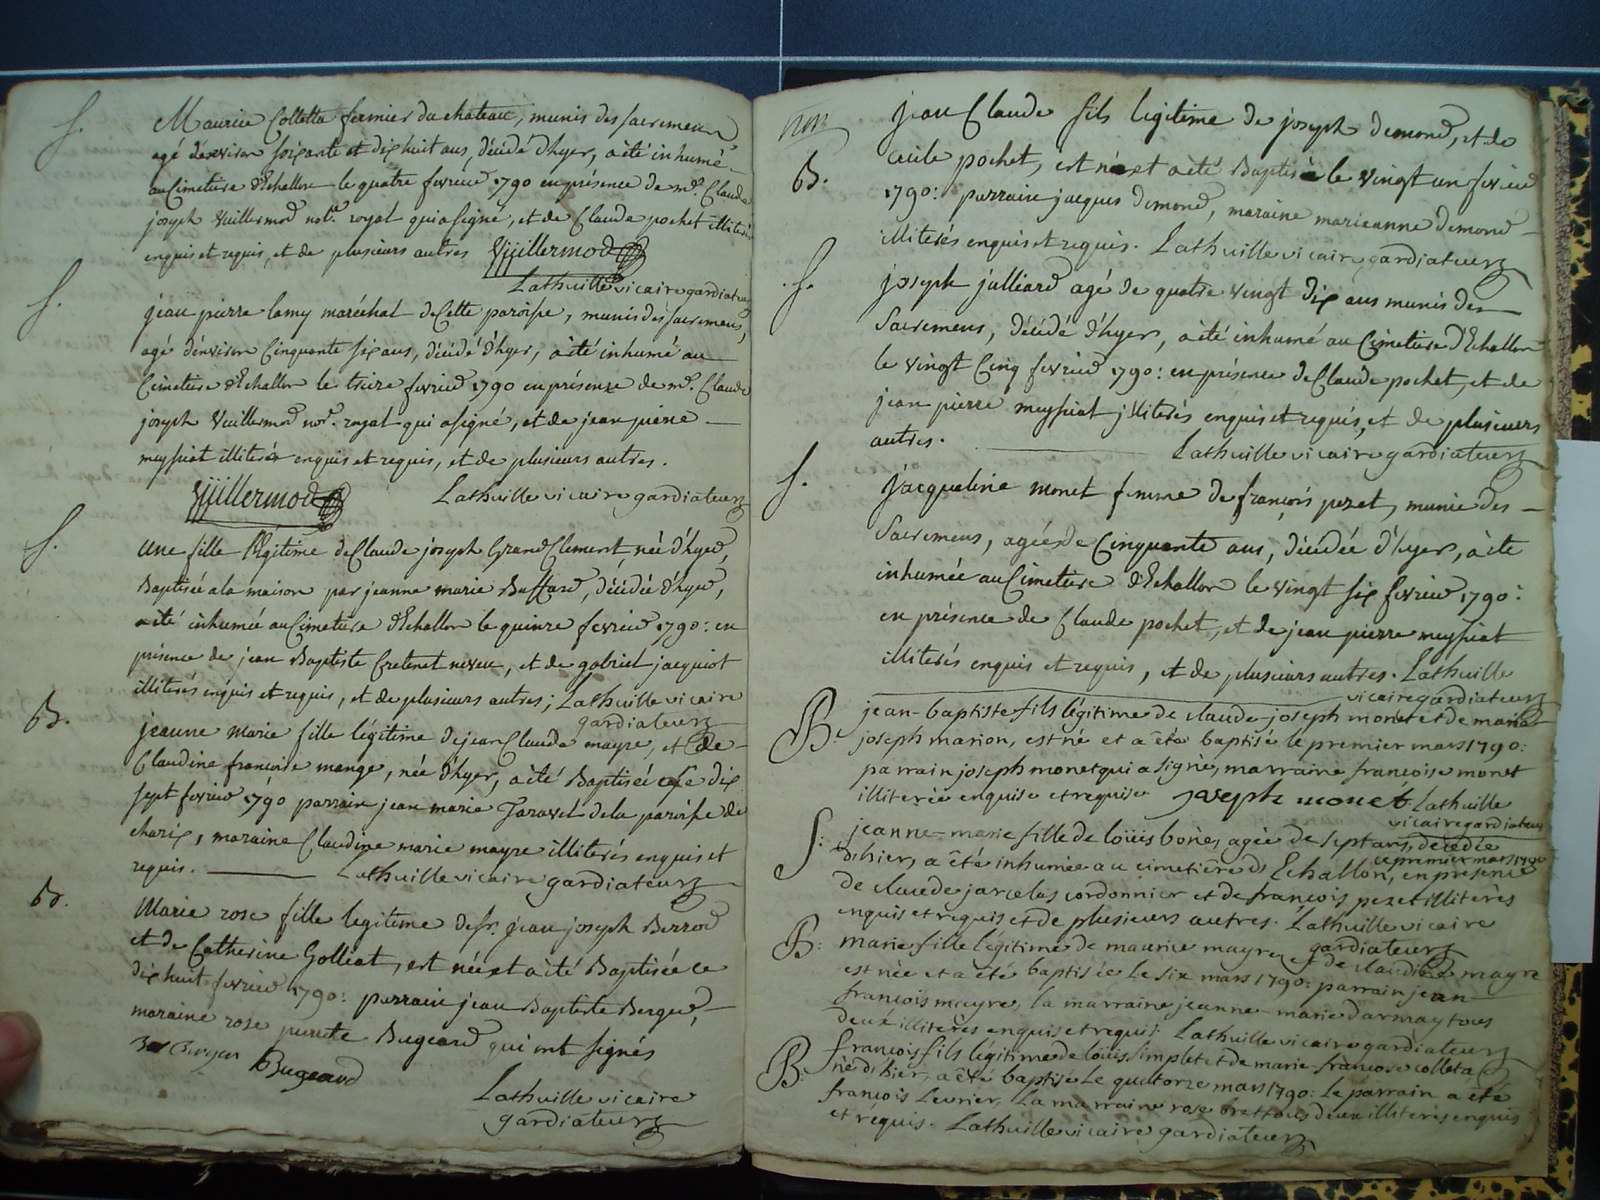 S.
Maurice Colletta fermier du chateau, munis des sacremens
agé denviron soixante et dix huit ans, décédé d'hyer, a été inhumé
au Cimetiere d'Echallon le quatre fevrier 1790 en présence de mr. Claude
joseph Vuillermod notre. royal qui a signé, et de Claude pochet illiteré
enquis et requis, et de plusieurs autres Vuillermod
Lathuille vicaire gardiateur
S.
jean pierre lamy maréchal de Cette paroisse, munis des sacremens,
agé d'environ Cinquante six ans, décédé d'hyer, a été inhumé au
Cimetiere d'Echallon le treize fevrier 1790 en présence de mr. Claude
joseph Vuillermod nore. royal qui a signé, et de jean pierre
meyssiat illiterés enquis et requis, et de plusieurs autres.
Vuillermod Lathuille vicaire gardiateur
S.
une fille légitime de Claude joseph Grand Clement, née d'hyer,
Baptisée a la maison par jeanne marie Buffard, décédée d'hyer,
a été inhumée au Cimetiere d'Echallon le quinze fevrier 1790: en
présence de jean Baptiste Cretenet neveu, et de gabriel jacquiot
illiterés enquis et requis, et de plusieurs autres; Lathuille vicaire
gardiateur
B.
jeanne marie fille légitime de jean Claude mayre, et de
Claudine francoise mange, née d'hyer, a été Baptisée le dix
sept fevrier 1790 parrain jean marie Taravel de la paroisse de
charix, maraine Claudine marie mayre illiterés enquis et
requis. Lathuille vicaire gardiateur
B.
Marie rose fille legitime de sr. jean joseph Berrod
et de Catherine Golliat, est née et a été Baptisée le
dix huit fevrier 1790: parrain jean Baptiste Berger,
maraine rose Bugeard qui ont signés
Bugeard
Lathuille vicaire
gardiateur
non
B.
jean Claude fils legitime de joseph demond, et de
cecile pochet, est né et a été Baptisé le vingt un fevrier
1790: parrain jacques demond, maraine marieanne demond
illiterés enquis et requis. Lathuille vicaire gardiateur
S.
joseph julliard agé de quatre vingt dix ans munis des
Sacremens, décédé d'hyer, a été inhumé au Cimetiere d'Echallon
le vingt Cinq fevrier 1790: en présence de Claude pochet, et de
jean pierre meyssiat illiterés enquis et requis, et de plusieurs
autres. Lathuille vicaire gardiateur
S.
jacqueline monet femme de françois pezet, munie des
Sacremens, agée de Cinquante ans, décédée d'hyer, a été
inhumée au Cimetiere d'Echallon le vingt six fevrier 1790:
en présence de Claude pochet, et de jean pierre meyssiat
illiterés enquis et requis, et de plusieurs autres. Lathuille
vicaire gardiateur
B.
jean-baptiste fils légitime de claude-joseph monet et de marie
joseph marion, est né et a été baptisé le premier mars 1790:
parrain joseph monet qui a signé, marraine francoise monet
illiterée enquise et requise joseph monet Lathuille
vicaire gardiateur
S:
jeanne-marie fille de loüis boné, agée de sept ans, décédée
d'hier, a été inhumée au cimetière d'Echallon, ce premier mars 1790 en présence
de claude jarcelas cordonnier et de françois pezet illiterés
enquis et requis et de plusieurs autres. Lathuille vicaire
gardiateur
B:
marie fille légitime de maurice mayre, et de claudine mayre
est née et a été baptisée le six mars 1790: parrain jean
françois mayre, la marraine jeanne-marie darmay tous
deux illiterés enquis et requis. Lathuille vicaire gardiateur
B:
francois fils légitime de loüis simplet et de marie-francoise colleta
né d'hier, a été baptisé le quatorze mars 1790: le parrain a été
françois levrier, la marraine rose brat tous deux illiterés enquis
et requis. Lathuille vicaire gardiateur